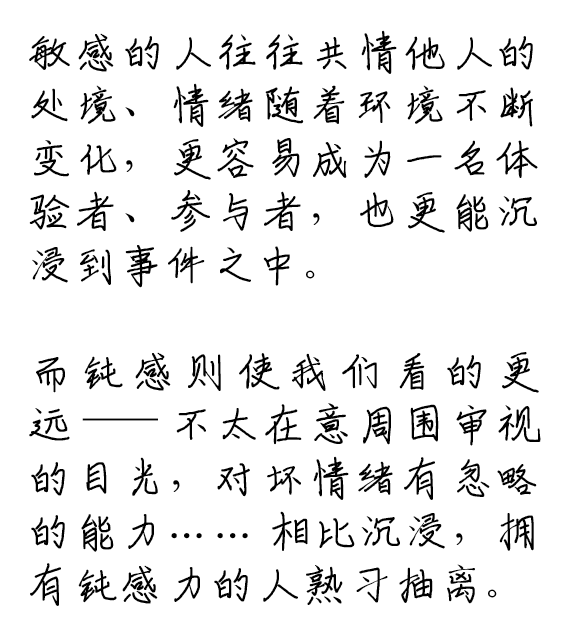 敏感的人往往共情他人的
处境、情绪随着环境不断
变化，更容易成为一名体
验者、参与者，也更能沉
浸到事件之中。
而钝感则使我们看的更
远——不太在意周围审视
的目光，对坏情绪有忽略
的能力……相比沉浸，拥
有钝感力的人熟习抽离。